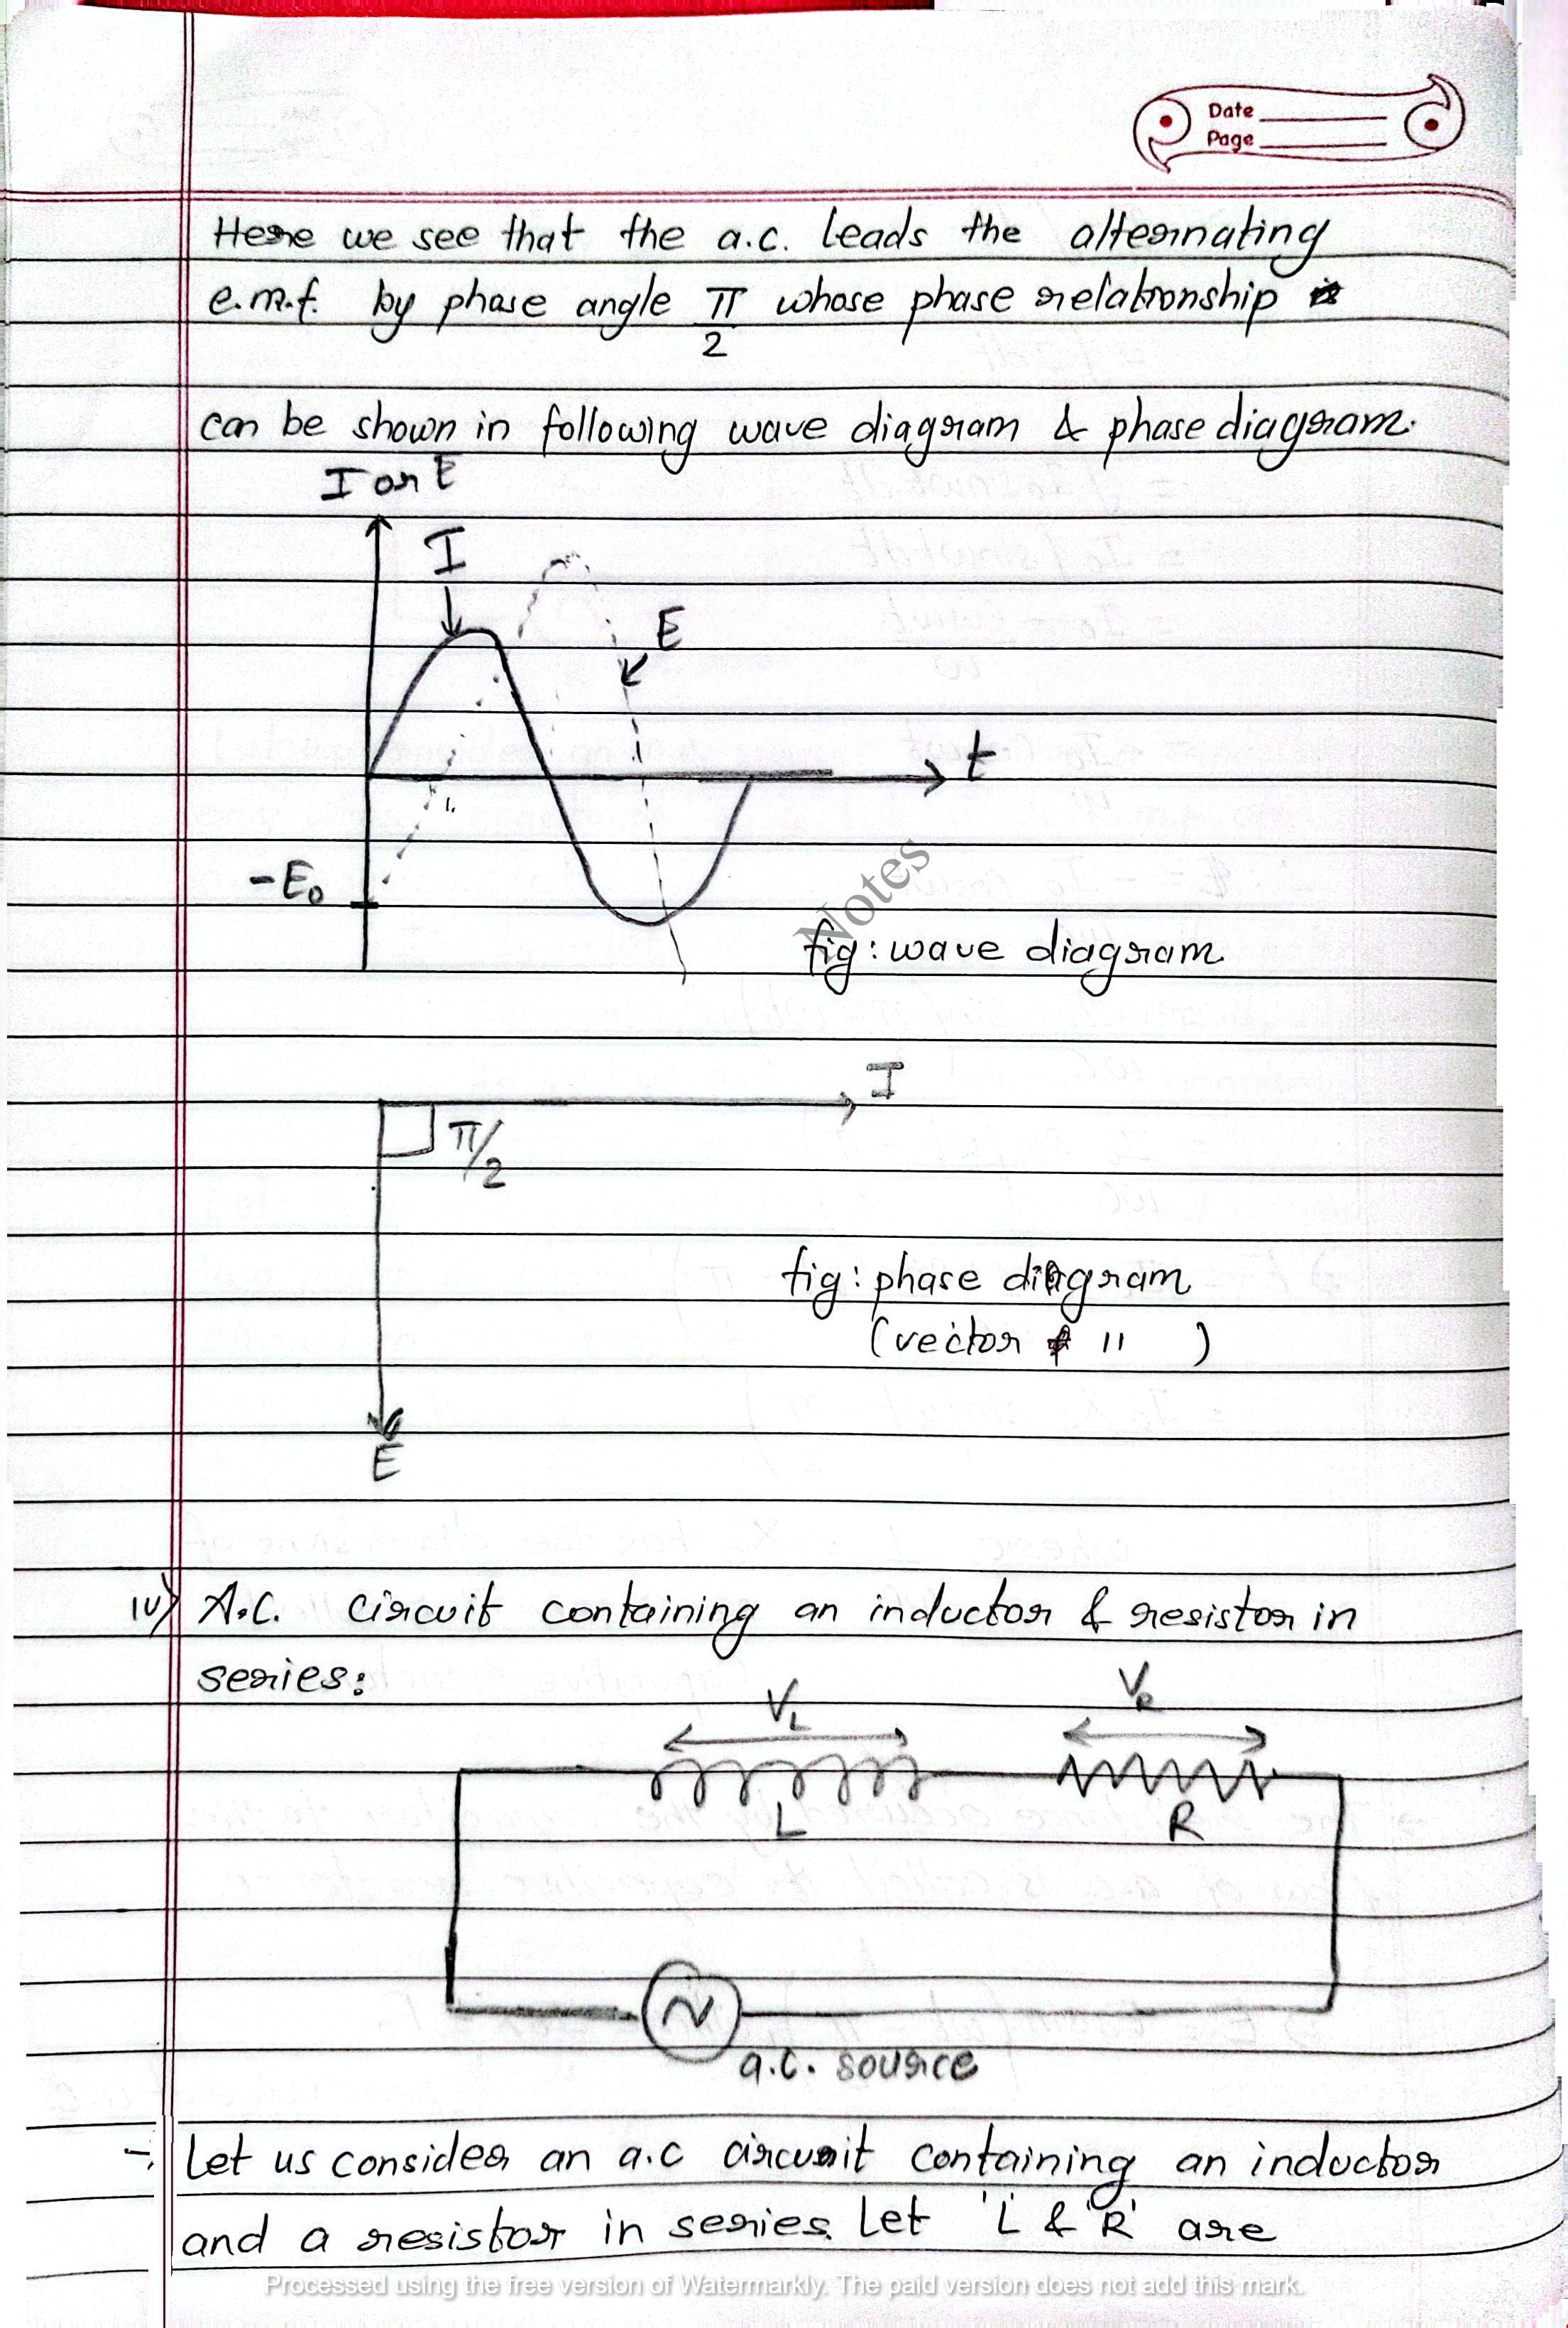 Date
Page
Here we see that the a.c. leads the alternating
e.m.f. by phase angle π/2 whose phase relationship
can be shown in following wave diagram & phase diagram.
I or E
I
E
t
-E₀
Notes
fig: wave diagram
I
π/2
fig: phase diagram
(vector " )
E
iv) A.C. circuit containing an inductor & resistor in
series:
V_L V_R
L R
a.c. source
-, Let us consider an a.c circuit containing an inductor
and a resistor in series. Let 'L' & 'R' are
Processed using the free version of Watermarkly. The paid version does not add this mark.